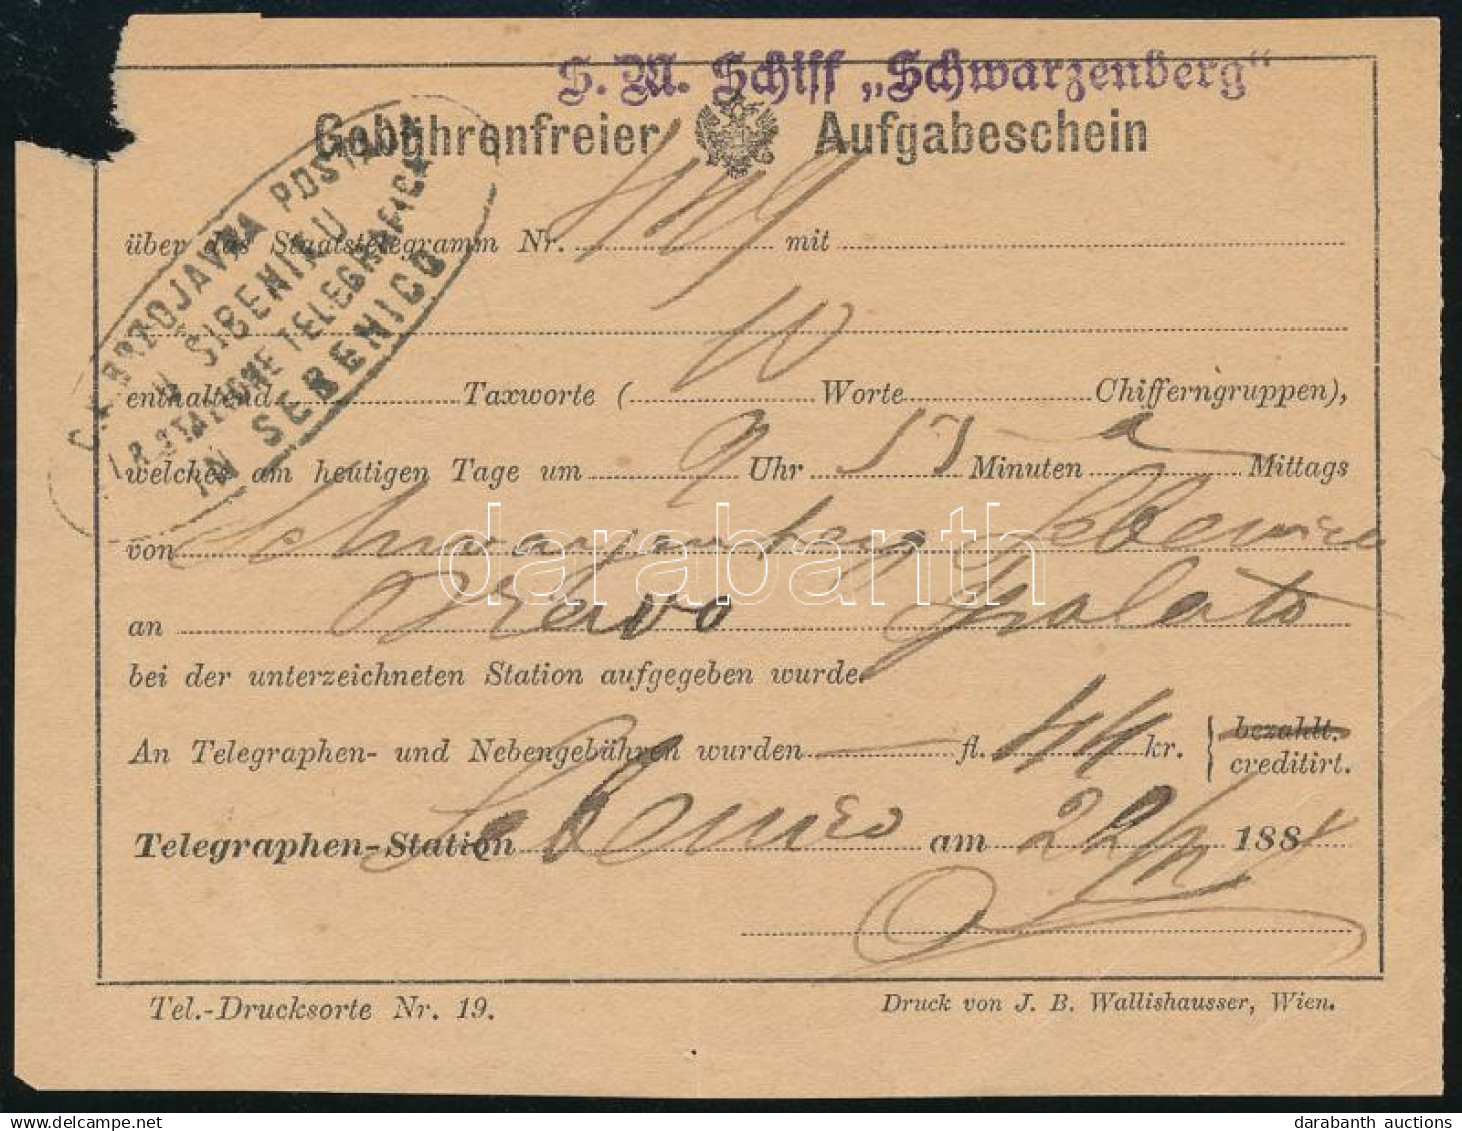 S. M. Schiff „Schwarzenberg“
Gebührenfreier Aufgabeschein
C. K. BRZOJAVNA POSTAJA
U ŠIBENIKU
I. R. STAZIONE TELEGRAFICA
IN SEBENICO
über das Staatstelegramm Nr. 449 mit
10
enthaltend Taxworte ( Worte Chifferngruppen),
welches am heutigen Tage um 9 Uhr 55 Minuten a Mittags
von Schwarzenberg Sebenico
an Spalato
bei der unterzeichneten Station aufgegeben wurde.
An Telegraphen- und Nebengebühren wurden — fl. 44 kr. bezahlt. creditirt.
Telegraphen-Station Sebenico am 22/ 188
Tel.-Drucksorte Nr. 19.
Druck von J. B. Wallishausser, Wien.
darabanth
darabanth auctions